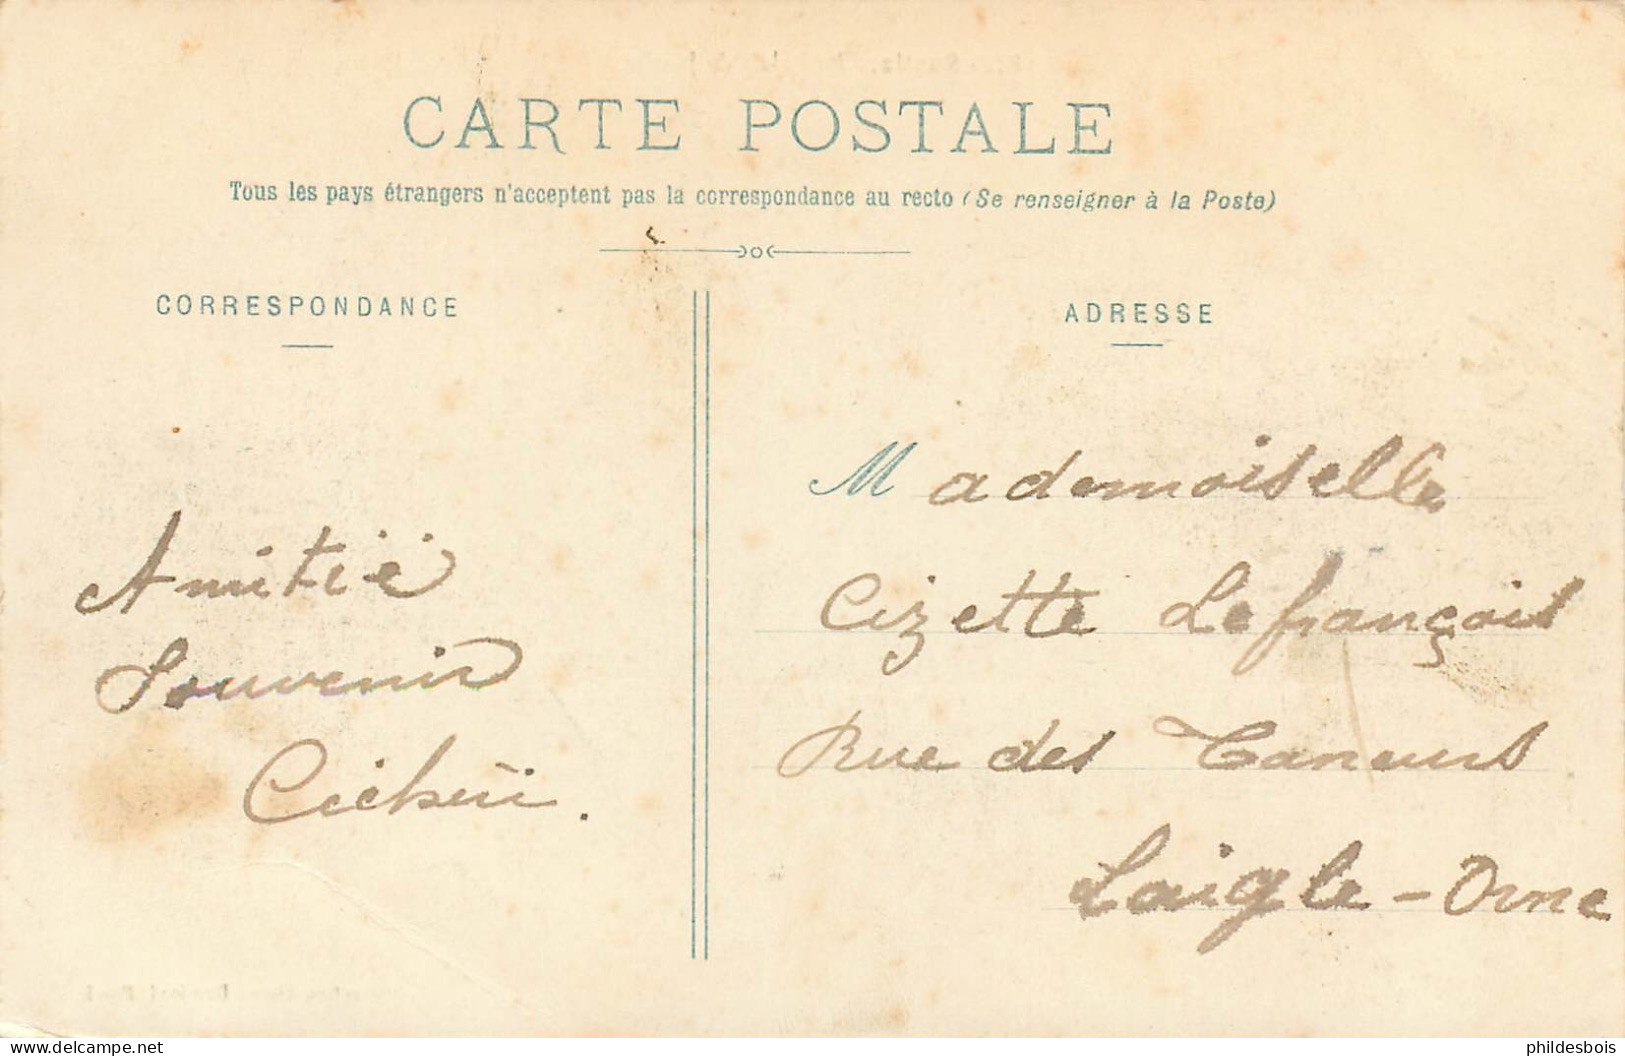 CARTE POSTALE
Tous les pays étrangers n'acceptent pas la correspondance au recto (Se renseigner à la Poste)
CORRESPONDANCE
Amitié
Souvenir
ADRESSE
Mademoiselle
Cizette Lefrançois
Rue des Taneurs
Laigle - Orne
delcampe.net
phildesbois